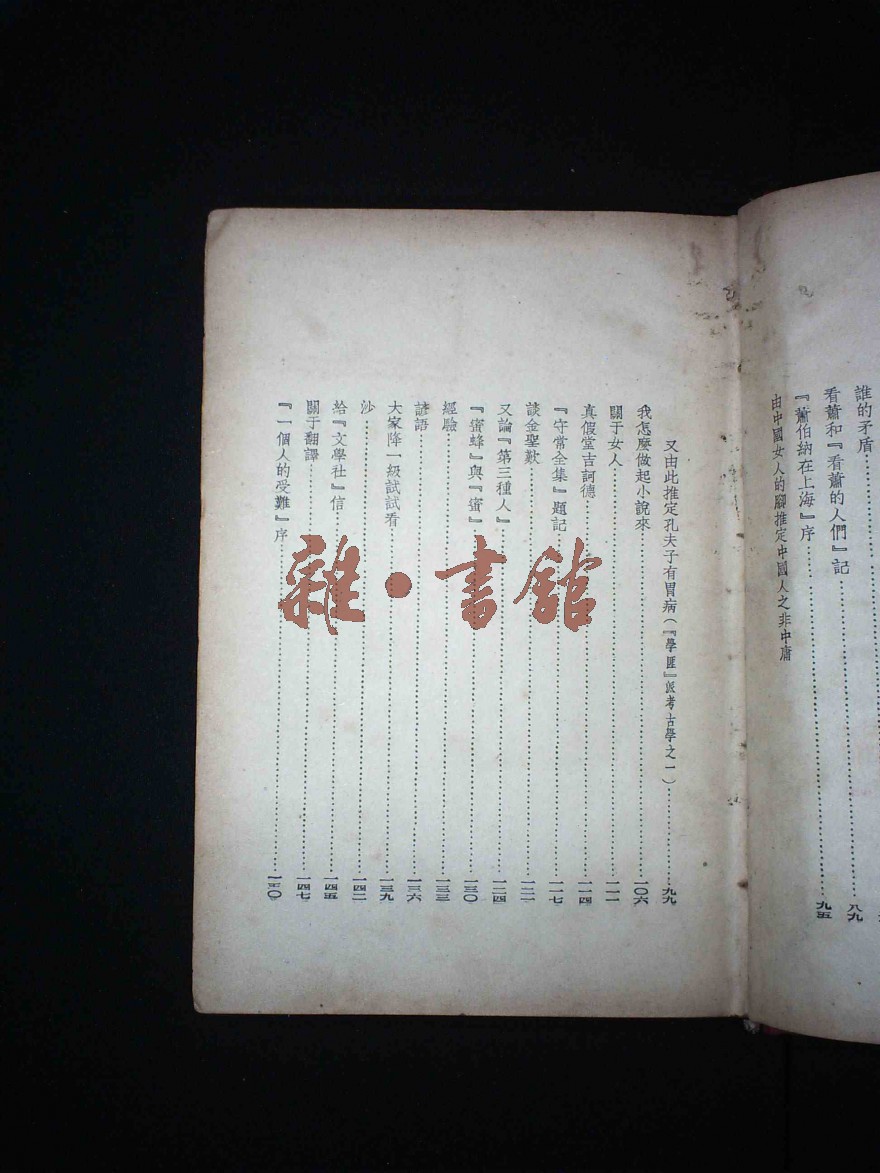 誰的矛盾
看蕭和『看蕭的人們』記 八九
『蕭伯納在上海』序 九五
由中國女人的腳推定中國人之非中庸
又由此推定孔夫子有胃病（『學匪』派考古學之一） 九九
我怎麼做起小說來 一〇六
關于女人 一一一
真假堂吉訶德 一一四
『守常全集』題記 一一七
談金聖歎 一二一
又論『第三種人』 一二四
『蜜蜂』與『蜜』 一三〇
經驗 一三三
諺語 一三六
大家降一級試試看 一三九
沙 一四二
給『文學社』信 一四五
關于翻譯 一四七
『一個人的受難』序 一五〇
雜·書館